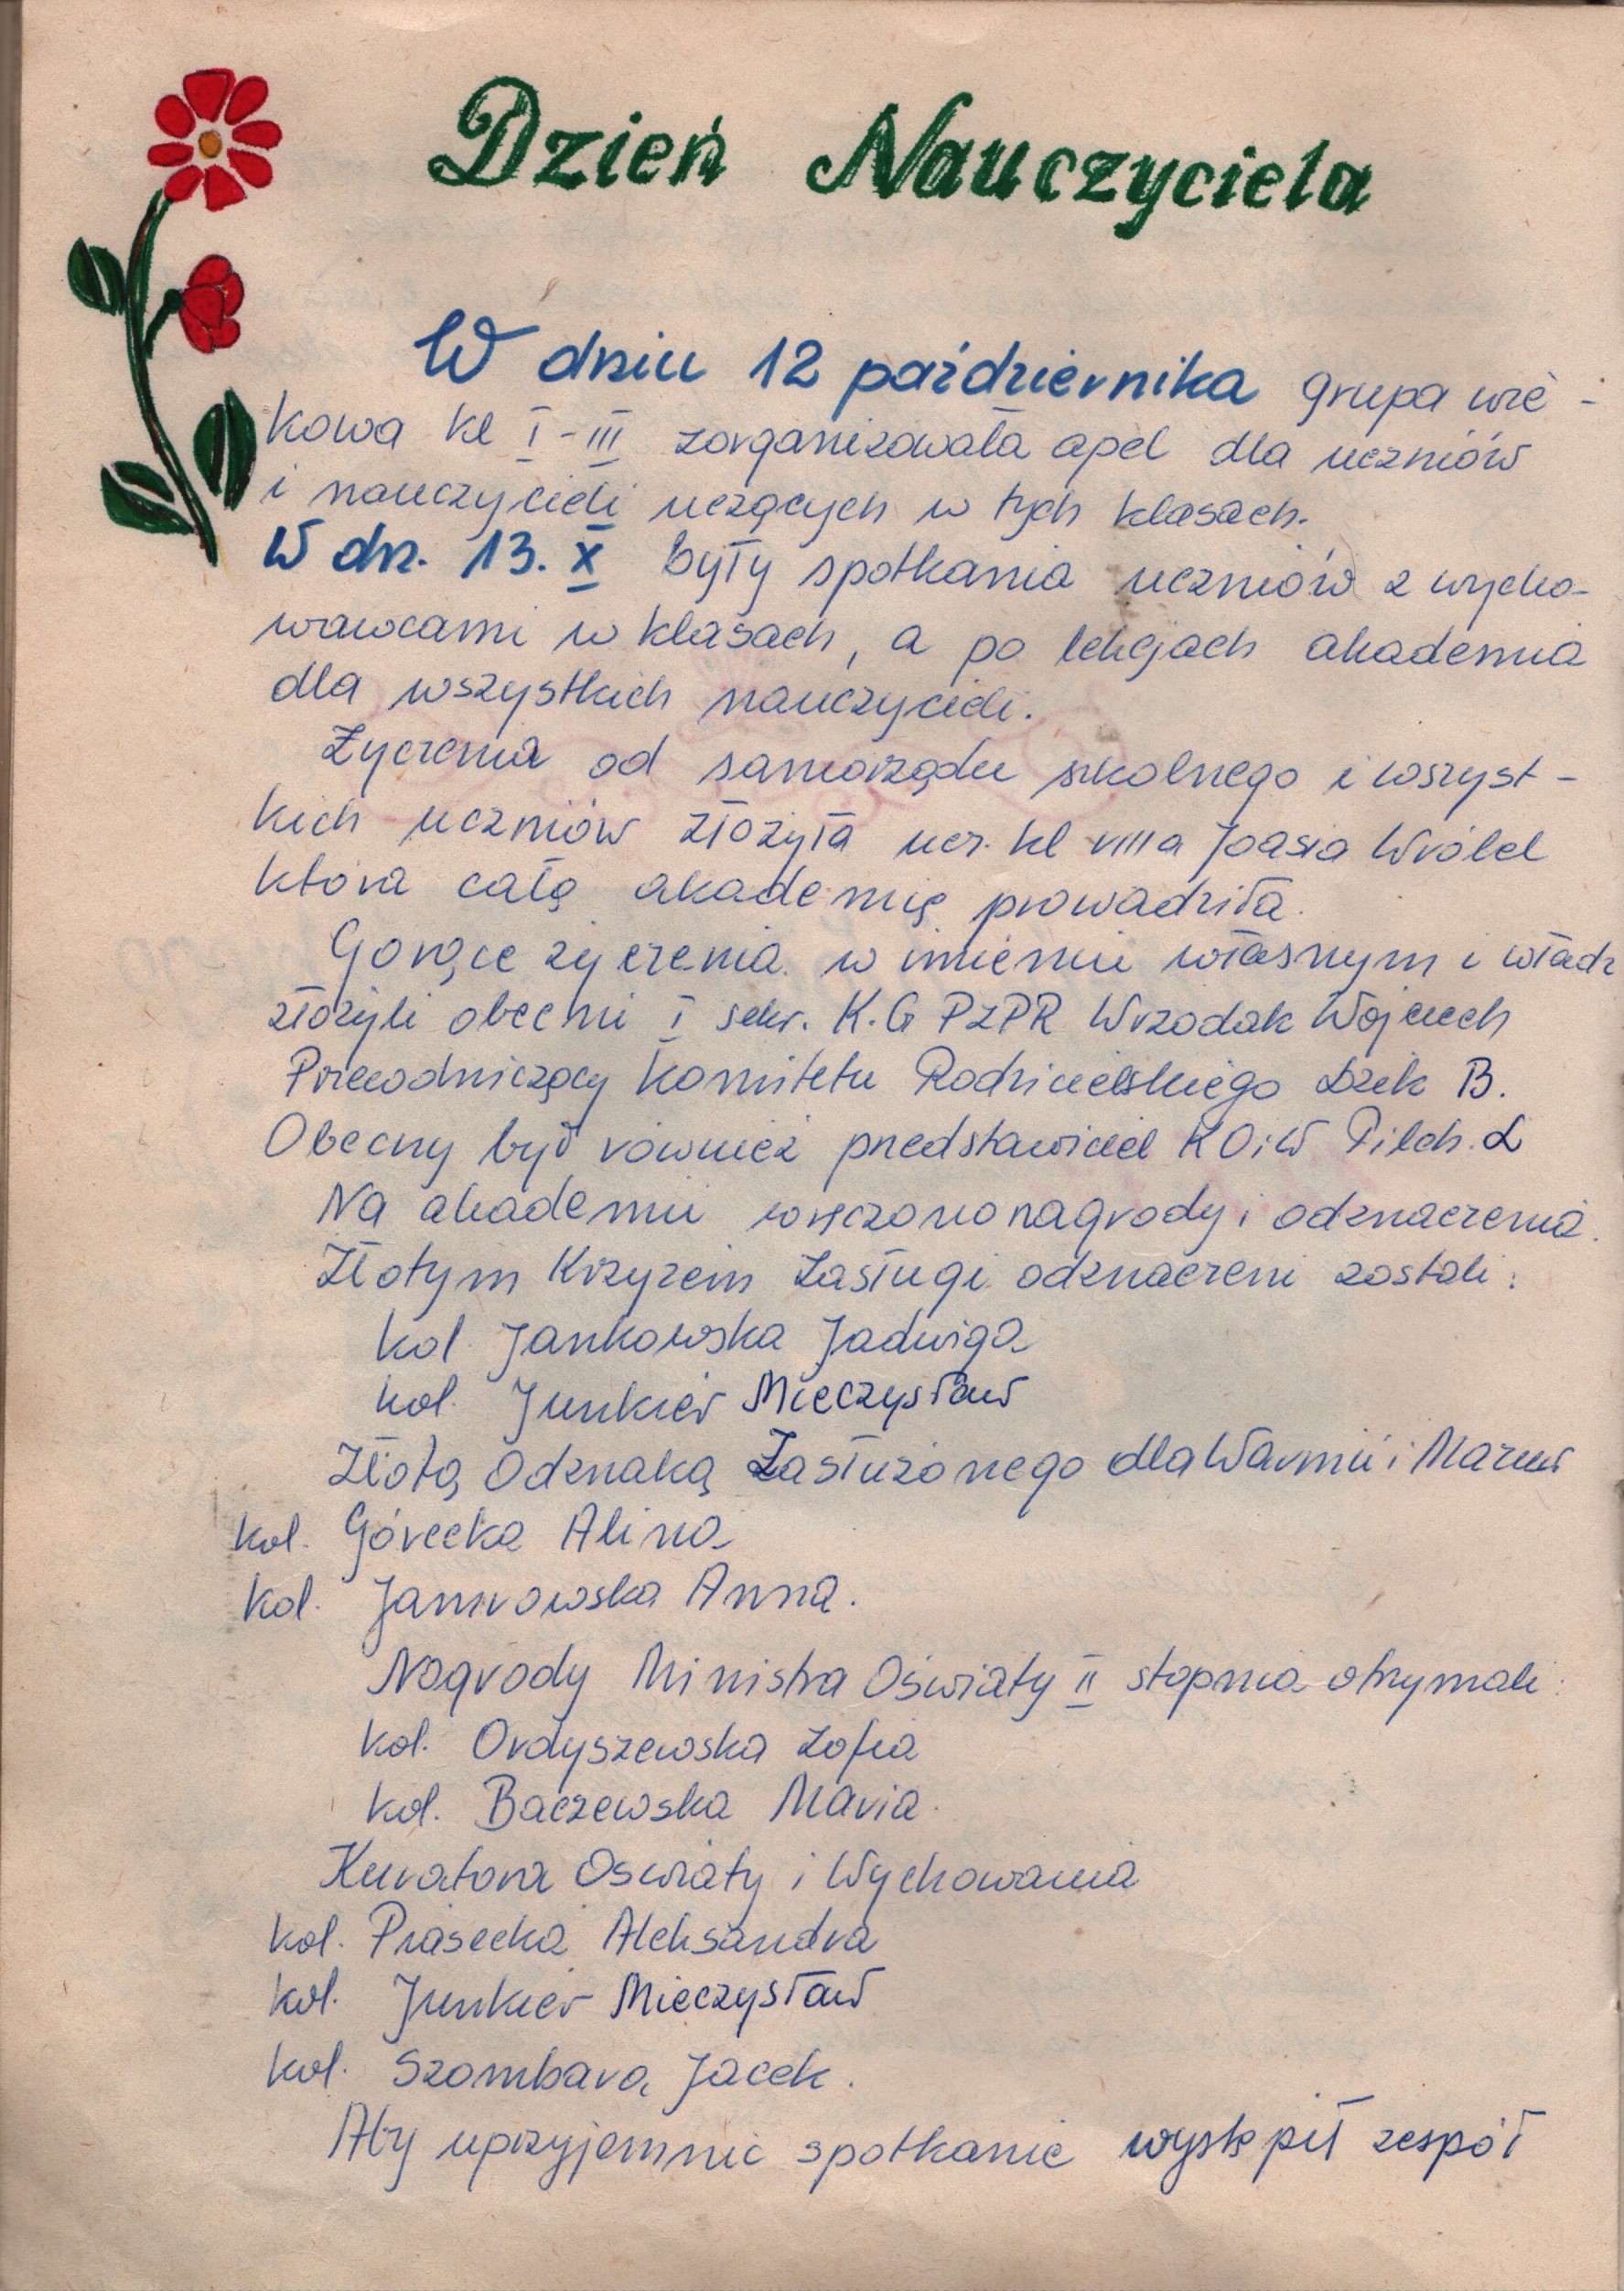 Dzień Nauczyciela
W dniu 12 października grupa wie-
kowa kl I-III zorganizowała apel dla uczniów
i nauczycieli uczących w tych klasach.
W dn. 13. X były spotkania uczniów z wycho-
wawcami w klasach, a po lekcjach akademia
dla wszystkich nauczycieli.
Życzenia od samorządu szkolnego i wszyst-
kich uczniów złożyła ucz. kl VIII a Joasia Wróbel
która całą akademię prowadziła.
Gorące życzenia w imieniu własnym i władz
złożyli obecni I sekr. K.G PZPR Wrzodak Wojciech
Przewodniczący Komitetu Rodzicielskiego Dzik B.
Obecny był również przedstawiciel KOiW Pilch. L
Na akademii wręczono nagrody i odznaczenia.
Złotym Krzyżem Zasługi odznaczeni zostali:
kol. Jankowska Jadwiga
kol. Junkier Mieczysław
Złotą Odznaką Zasłużonego dla Warmii i Mazur
kol. Górecka Alina
kol. Jamrowska Anna.
Nagrody Ministra Oświaty II stopnia otrzymali:
kol. Ordyszewska Zofia
kol. Baczewska Maria.
Kuratora Oświaty i Wychowania
kol. Piasecka Aleksandra
kol. Junkier Mieczysław
kol. Szombara Jacek.
Aby uprzyjemnić spotkanie wystąpił zespół